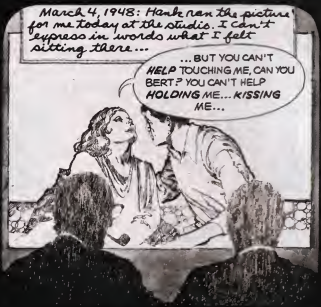 March 4, 1948: Hank ran the picture
for me today at the studio. I can't
express in words what I felt
sitting there...
...BUT YOU CAN'T
HELP TOUCHING ME, CAN YOU
BERT? YOU CAN'T HELP
HOLDING ME...KISSING
ME...